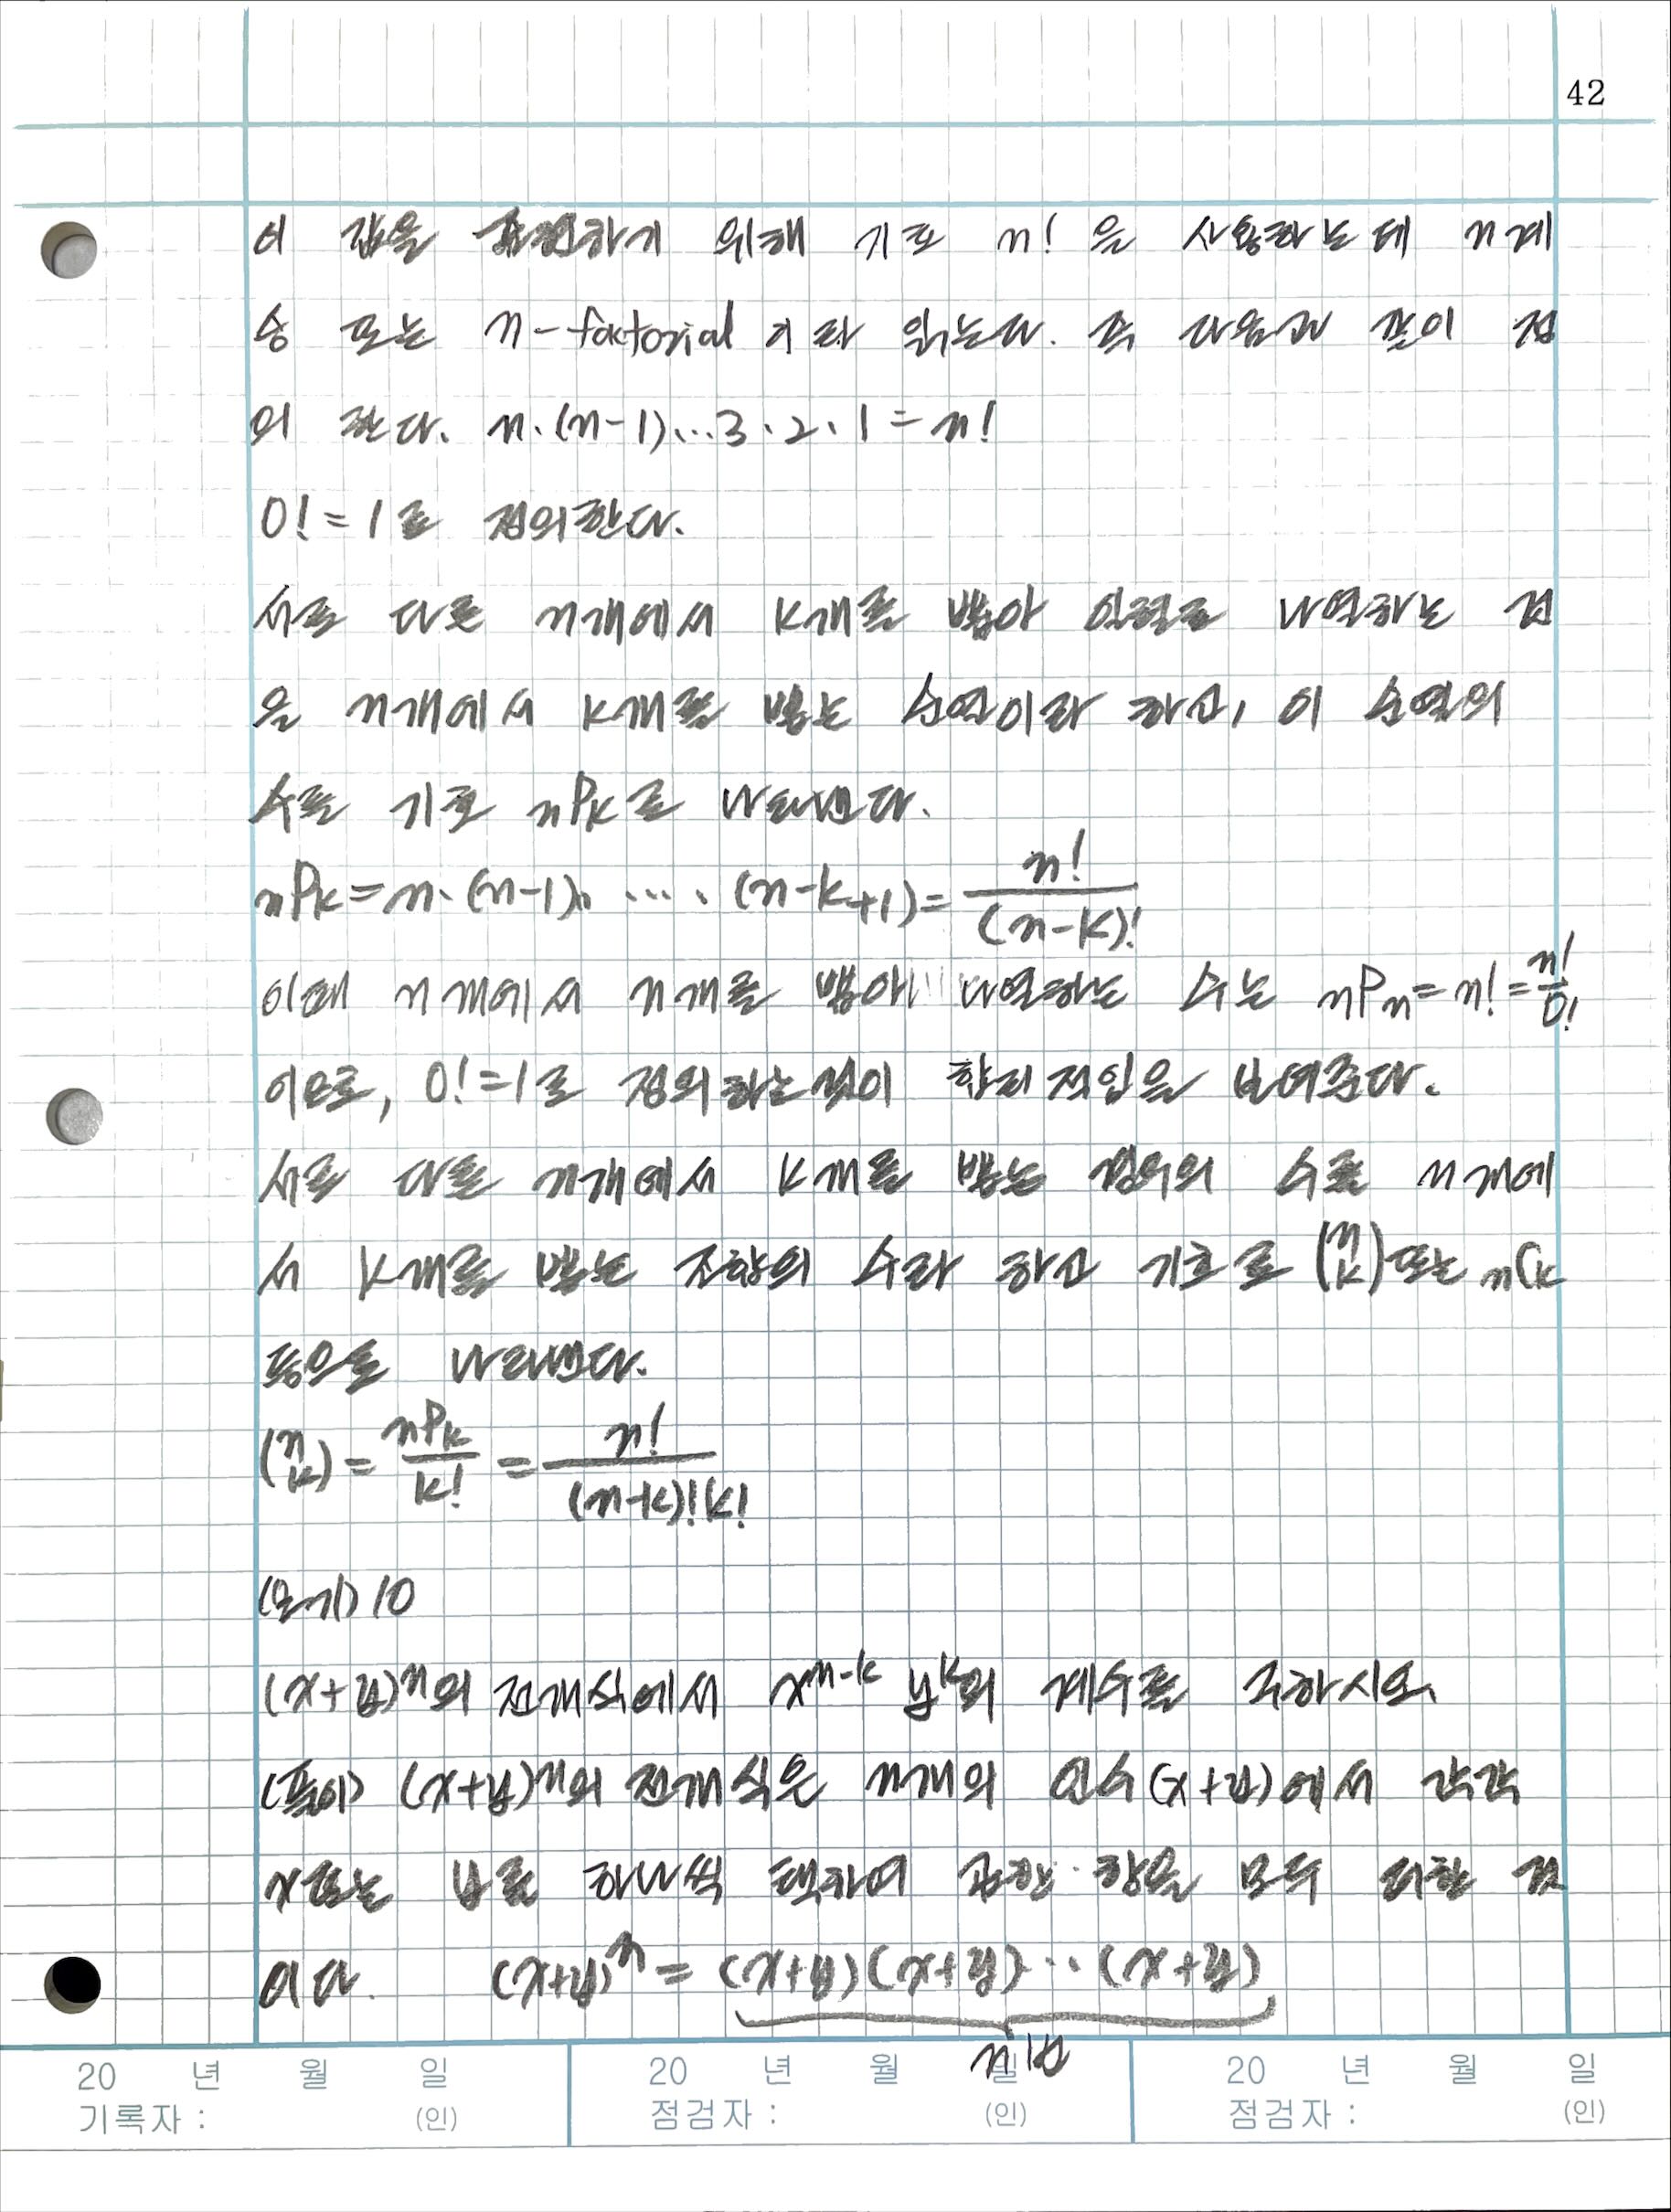 42
이 값을 표현하기 위해 기호 n! 을 사용하는데 n계
승 또는 n-factorial 이라 읽는다. 즉 다음과 같이 정
의 한다. n·(n-1)···3·2·1=n!
0!=1로 정의한다.
서로 다른 n개에서 k개를 뽑아 일렬로 나열하는 것
을 n개에서 k개를 뽑는 순열이라 하고, 이 순열의
수를 기호 nPk로 나타낸다.
nPk=n·(n-1)· ··· ·(n-k+1)=n!/(n-k)!
이때 n개에서 n개를 뽑아 나열하는 수는 nPn=n!=n!/0!
이므로, 0!=1로 정의하는것이 합리적임을 보여준다.
서로 다른 n개에서 k개를 뽑는 경우의 수를 n개에
서 k개를 뽑는 조합의 수라 하고 기호로 (n k)또는 nCk
등으로 나타낸다.
(n k)=nPk/k!=n!/(n-k)!k!
(보기)10
(x+y)ⁿ의 전개식에서 xⁿ⁻ᵏ yᵏ의 계수를 구하시오.
(풀이) (x+y)ⁿ의 전개식은 n개의 인수(x+y)에서 각각
x또는 y를 하나씩 택하여 곱한 항을 모두 더한 것
이다. (x+y)ⁿ=(x+y)(x+y)···(x+y)
n번
20 년 월 일 20 년 월 일 20 년 월 일
기록자 : (인) 점검자 : (인) 점검자 : (인)